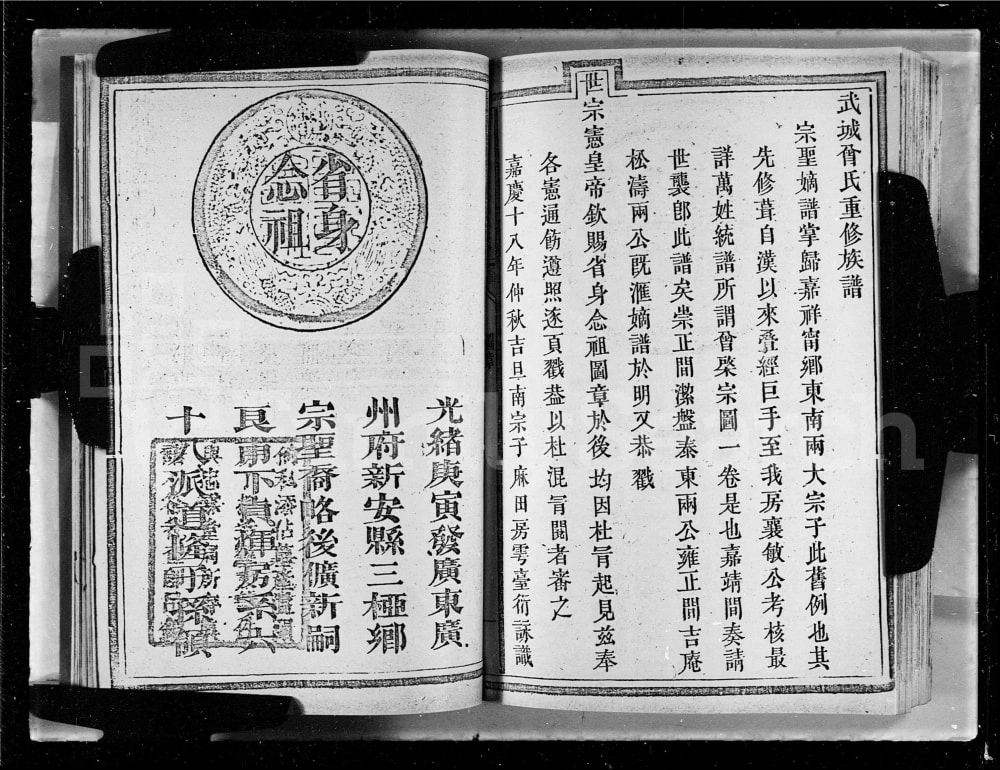 武城曾氏重修族譜
宗聖嫡譜掌歸嘉祥甯鄉東南兩大宗子此舊例也其
先修葺自漢以來叠經巨手至我房襄敏公考核最
詳萬姓統譜所謂曾棨宗圖一卷是也嘉靖間奏請
世襲卽此譜矣崇正間潔盤泰東兩公雍正間吉庵
松濤兩公既滙嫡譜於明又恭戳
世宗憲皇帝欽賜省身念祖圖章於後均因杜冐起見兹奉
各憲通飭遵照逐頁戳葢以杜混冐閱者審之
嘉慶十八年仲秋吉旦南宗子麻田房雩臺衍詠識
省身
念祖
光緒庚寅發廣東廣
州府新安縣三極鄉
宗聖裔略後儥新嗣
艮
十八派道